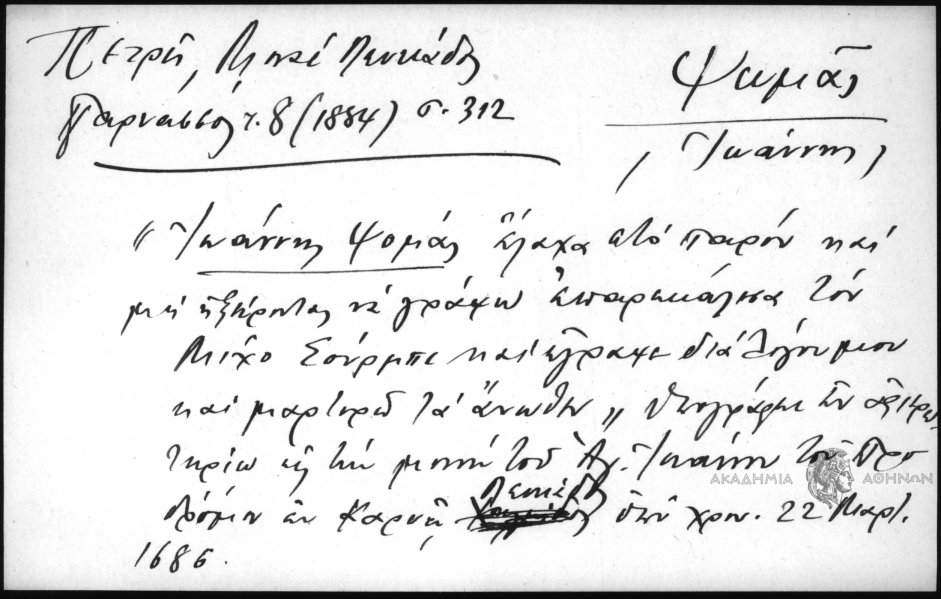 Πετρῆ, Μονὲ Λευκάδος
Παρνασσός τ. 8 (1884) σ. 312
Ψωμᾶς
, Ἰωάννης,
"Ἰωάννης Ψομάς ἔλαχα στό παρόν καί
μή ἠξέροντας νά γράψω ἐπαρεκάλεσα τόν
Μίχο Σούρμπε καί ἔγραψε διά λόγου μου
καί μαρτυρῶ τά ἄνωθεν" ὑπογράφει ἐν ἀφιερω-
τηρίῳ εἰς τήν μονήν τοῦ Ἁγ. Ἰωάννου τοῦ Προ
δρόμου ἐν Καρυᾷ, Λευκάδος ὑπό χρον. 22 Μαρτ.
1686.
ΑΚΑΔΗΜΙΑ ΑΘΗΝΩΝ